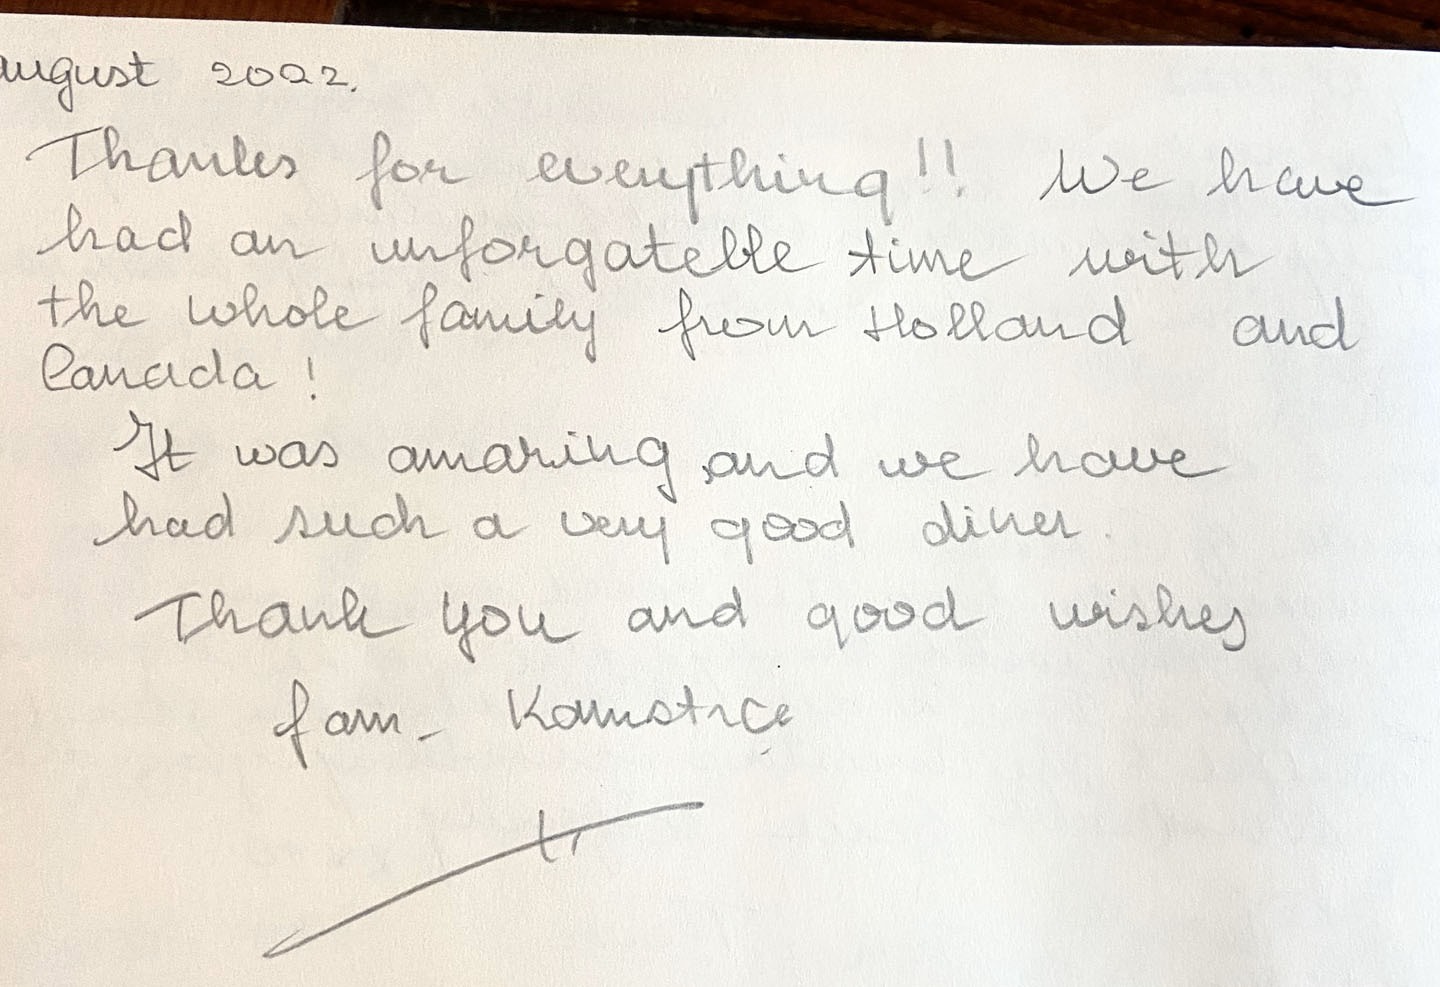 august 2022.
Thanks for everything!! We have
had an unforgatelle time with
the whole family from Holland and
Canada!
It was amazing, and we have
had such a very good diner.
Thank you and good wishes
fam.